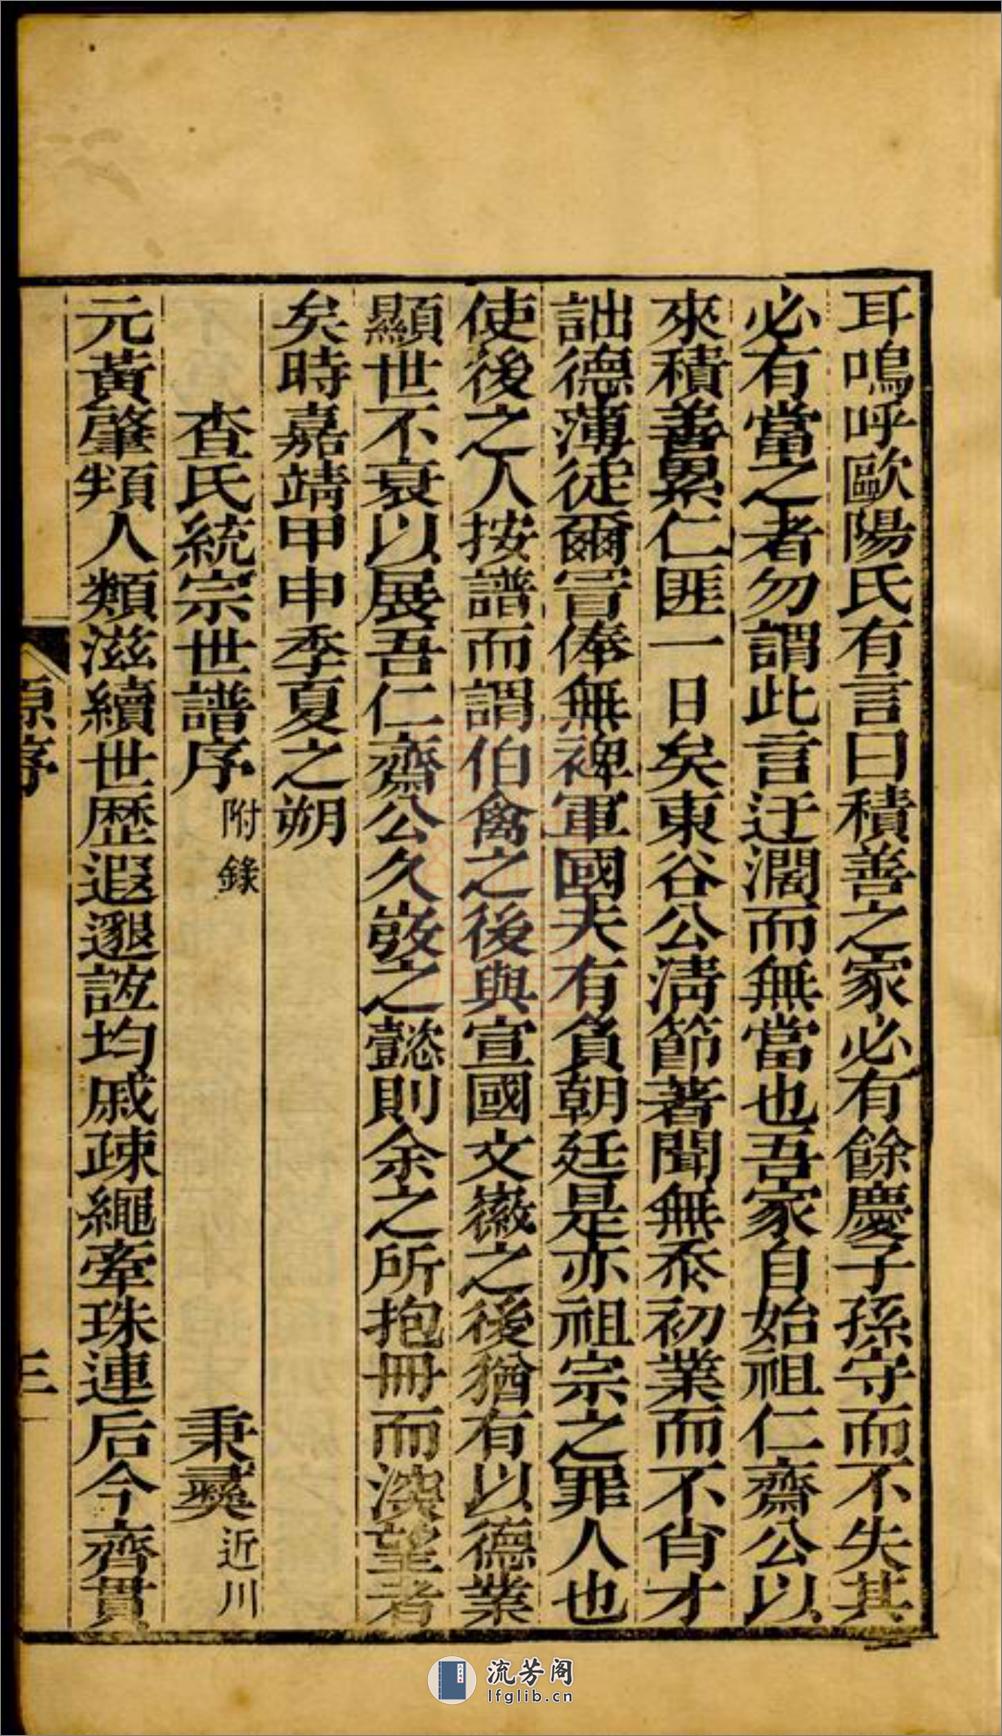 耳嗚呼歐陽氏有言曰積善之家必有餘慶子孫守而不失其
必有當之者勿謂此言迂濶而無當也吾家自始祖仁齋公以
來積善累仁匪一日矣東谷公清節著聞無忝初業而不肖才
詘德薄徒爾冒俸無裨軍國夫有負朝廷是亦祖宗之罪人也
使後之人按譜而謂伯禽之後與宣國文徽之後猶有以德業
顯世不衰以展吾仁齋公久敚之懿則余之所抱冊而深望者
矣時嘉靖甲申季夏之朔
查氏統宗世譜序 附錄 秉彛 近川
元黃肇類人類滋續世歷遐邈詃均戚疎繩牽珠連后今齊貫
原序
三
流芳阁
lfglib.cn